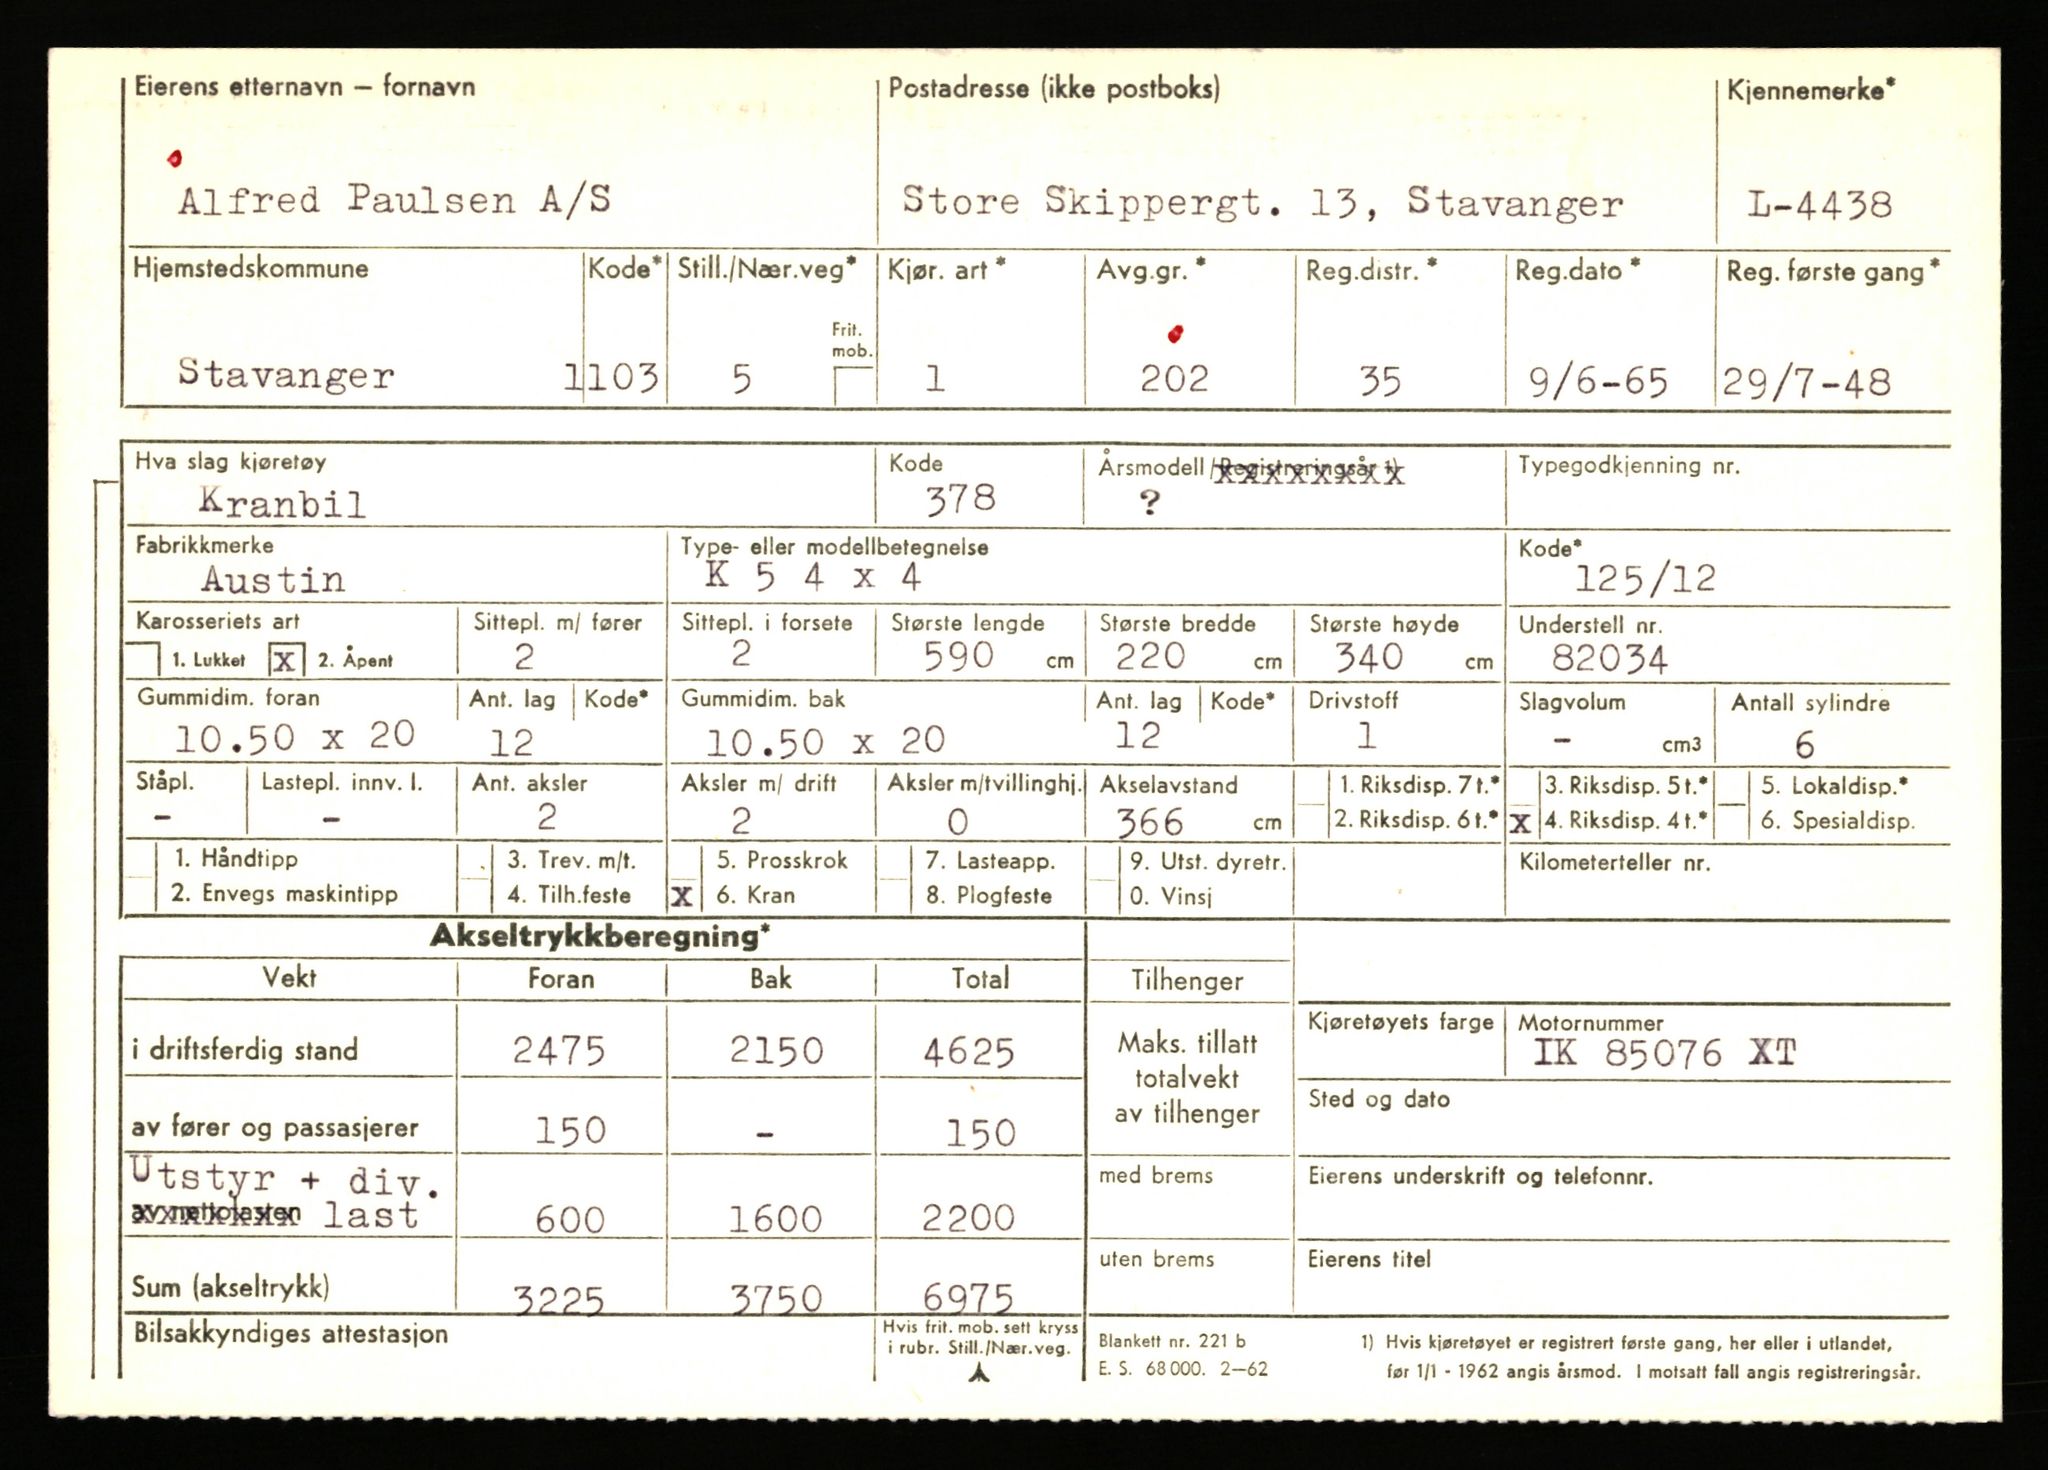 Eierens etternavn – fornavn Postadresse (ikke postboks) Kjennemerke*
Alfred Paulsen A/S Store Skippergt. 13, Stavanger L-4438
Hjemstedskommune Kode* Still./Nær.veg* Kjør. art* Avg.gr.* Reg.distr.* Reg.dato* Reg. første gang*
Frit.
mob.
Stavanger 1103 5 1 202 35 9/6-65 29/7-48
Hva slag kjøretøy Kode Årsmodell/Registreringsår 1) Typegodkjenning nr.
Kranbil 378 ?
Fabrikkmerke Type- eller modellbetegnelse Kode*
Austin K 5 4 x 4 125/12
Karosseriets art Sittepl. m/ fører Sittepl. i forsete Største lengde Største bredde Største høyde Understell nr.
1. Lukket X 2. Åpent 2 2 590 cm 220 cm 340 cm 82034
Gummidim. foran Ant. lag Kode* Gummidim. bak Ant. lag Kode* Drivstoff Slagvolum Antall sylindre
10.50 x 20 12 10.50 x 20 12 1 – cm3 6
Ståpl. Lastepl. innv. l. Ant. aksler Aksler m/ drift Aksler m/tvillinghj. Akselavstand 1. Riksdisp. 7 t.* 3. Riksdisp. 5 t.* 5. Lokaldisp.*
– – 2 2 0 366 cm 2. Riksdisp. 6 t.* X 4. Riksdisp. 4 t.* 6. Spesialdisp.
1. Håndtipp 3. Trev. m/t. 5. Prosskrok 7. Lasteapp. 9. Utst. dyretr. Kilometerteller nr.
2. Envegs maskintipp 4. Tilh.feste X 6. Kran 8. Plogfeste 0. Vinsj
Akseltrykkberegning*
Vekt Foran Bak Total Tilhenger
Kjøretøyets farge Motornummer
i driftsferdig stand 2475 2150 4625 Maks. tillatt IK 85076 XT
totalvekt
av tilhenger
Sted og dato
av fører og passasjerer 150 – 150
Utstyr + div. med brems Eierens underskrift og telefonnr.
av nettolasten last 600 1600 2200
uten brems Eierens titel
Sum (akseltrykk) 3225 3750 6975
Bilsakkyndiges attestasjon Hvis frit. mob. sett kryss Blankett nr. 221 b 1) Hvis kjøretøyet er registrert første gang, her eller i utlandet,
i rubr. Still./Nær.veg. E. S. 68 000. 2–62 før 1/1 - 1962 angis årsmod. I motsatt fall angis registreringsår.